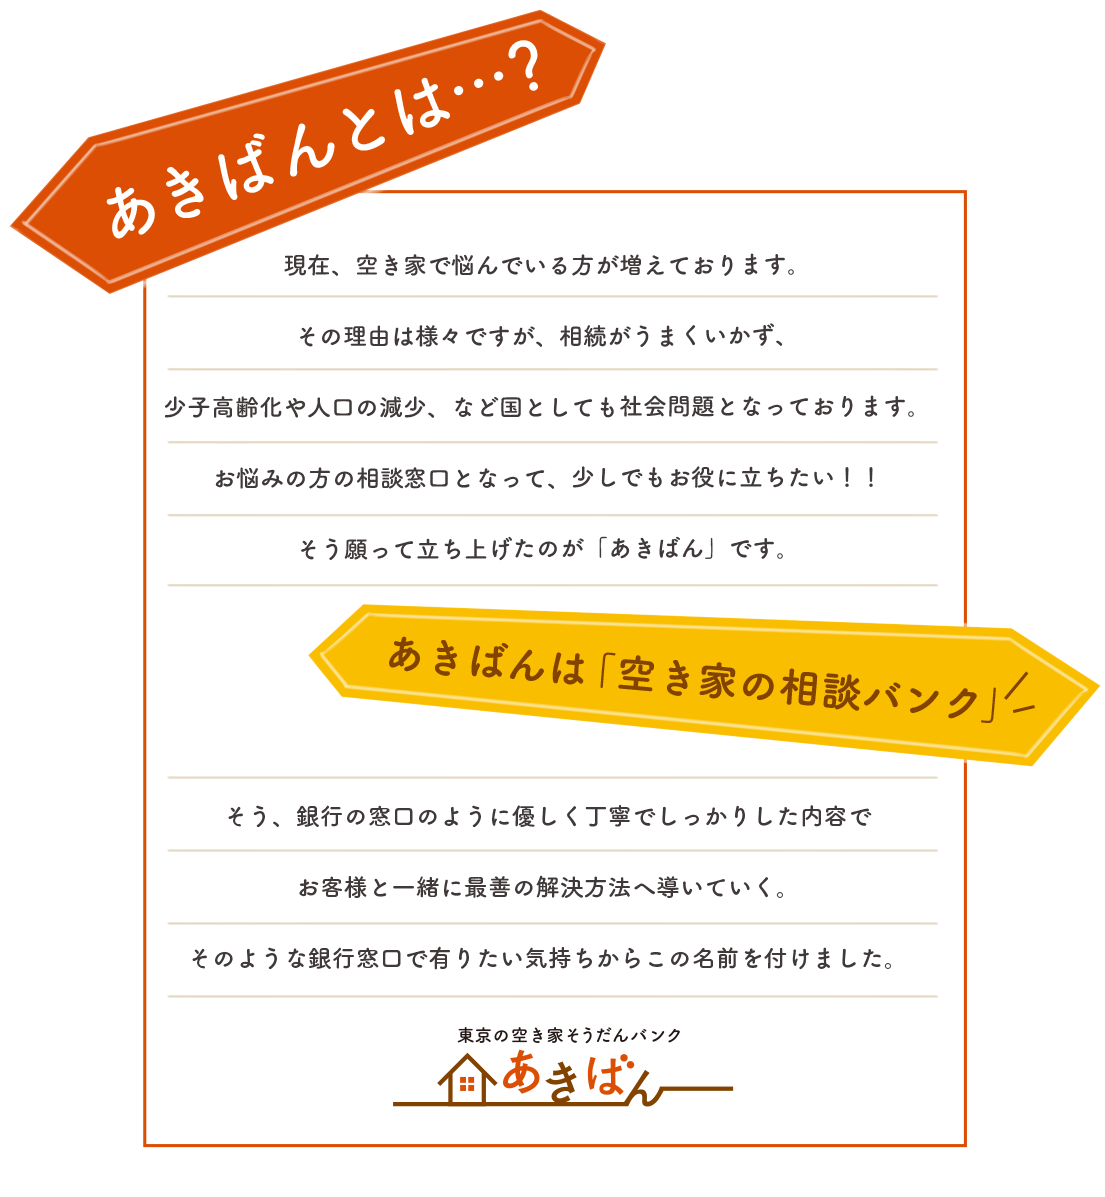 あきばんとは…？
現在、空き家で悩んでいる方が増えております。
その理由は様々ですが、相続がうまくいかず、
少子高齢化や人口の減少、など国としても社会問題となっております。
お悩みの方の相談窓口となって、少しでもお役に立ちたい！！
そう願って立ち上げたのが「あきばん」です。
あきばんは「空き家の相談バンク」
そう、銀行の窓口のように優しく丁寧でしっかりした内容で
お客様と一緒に最善の解決方法へ導いていく。
そのような銀行窓口で有りたい気持ちからこの名前を付けました。
東京の空き家そうだんバンク
あきばん